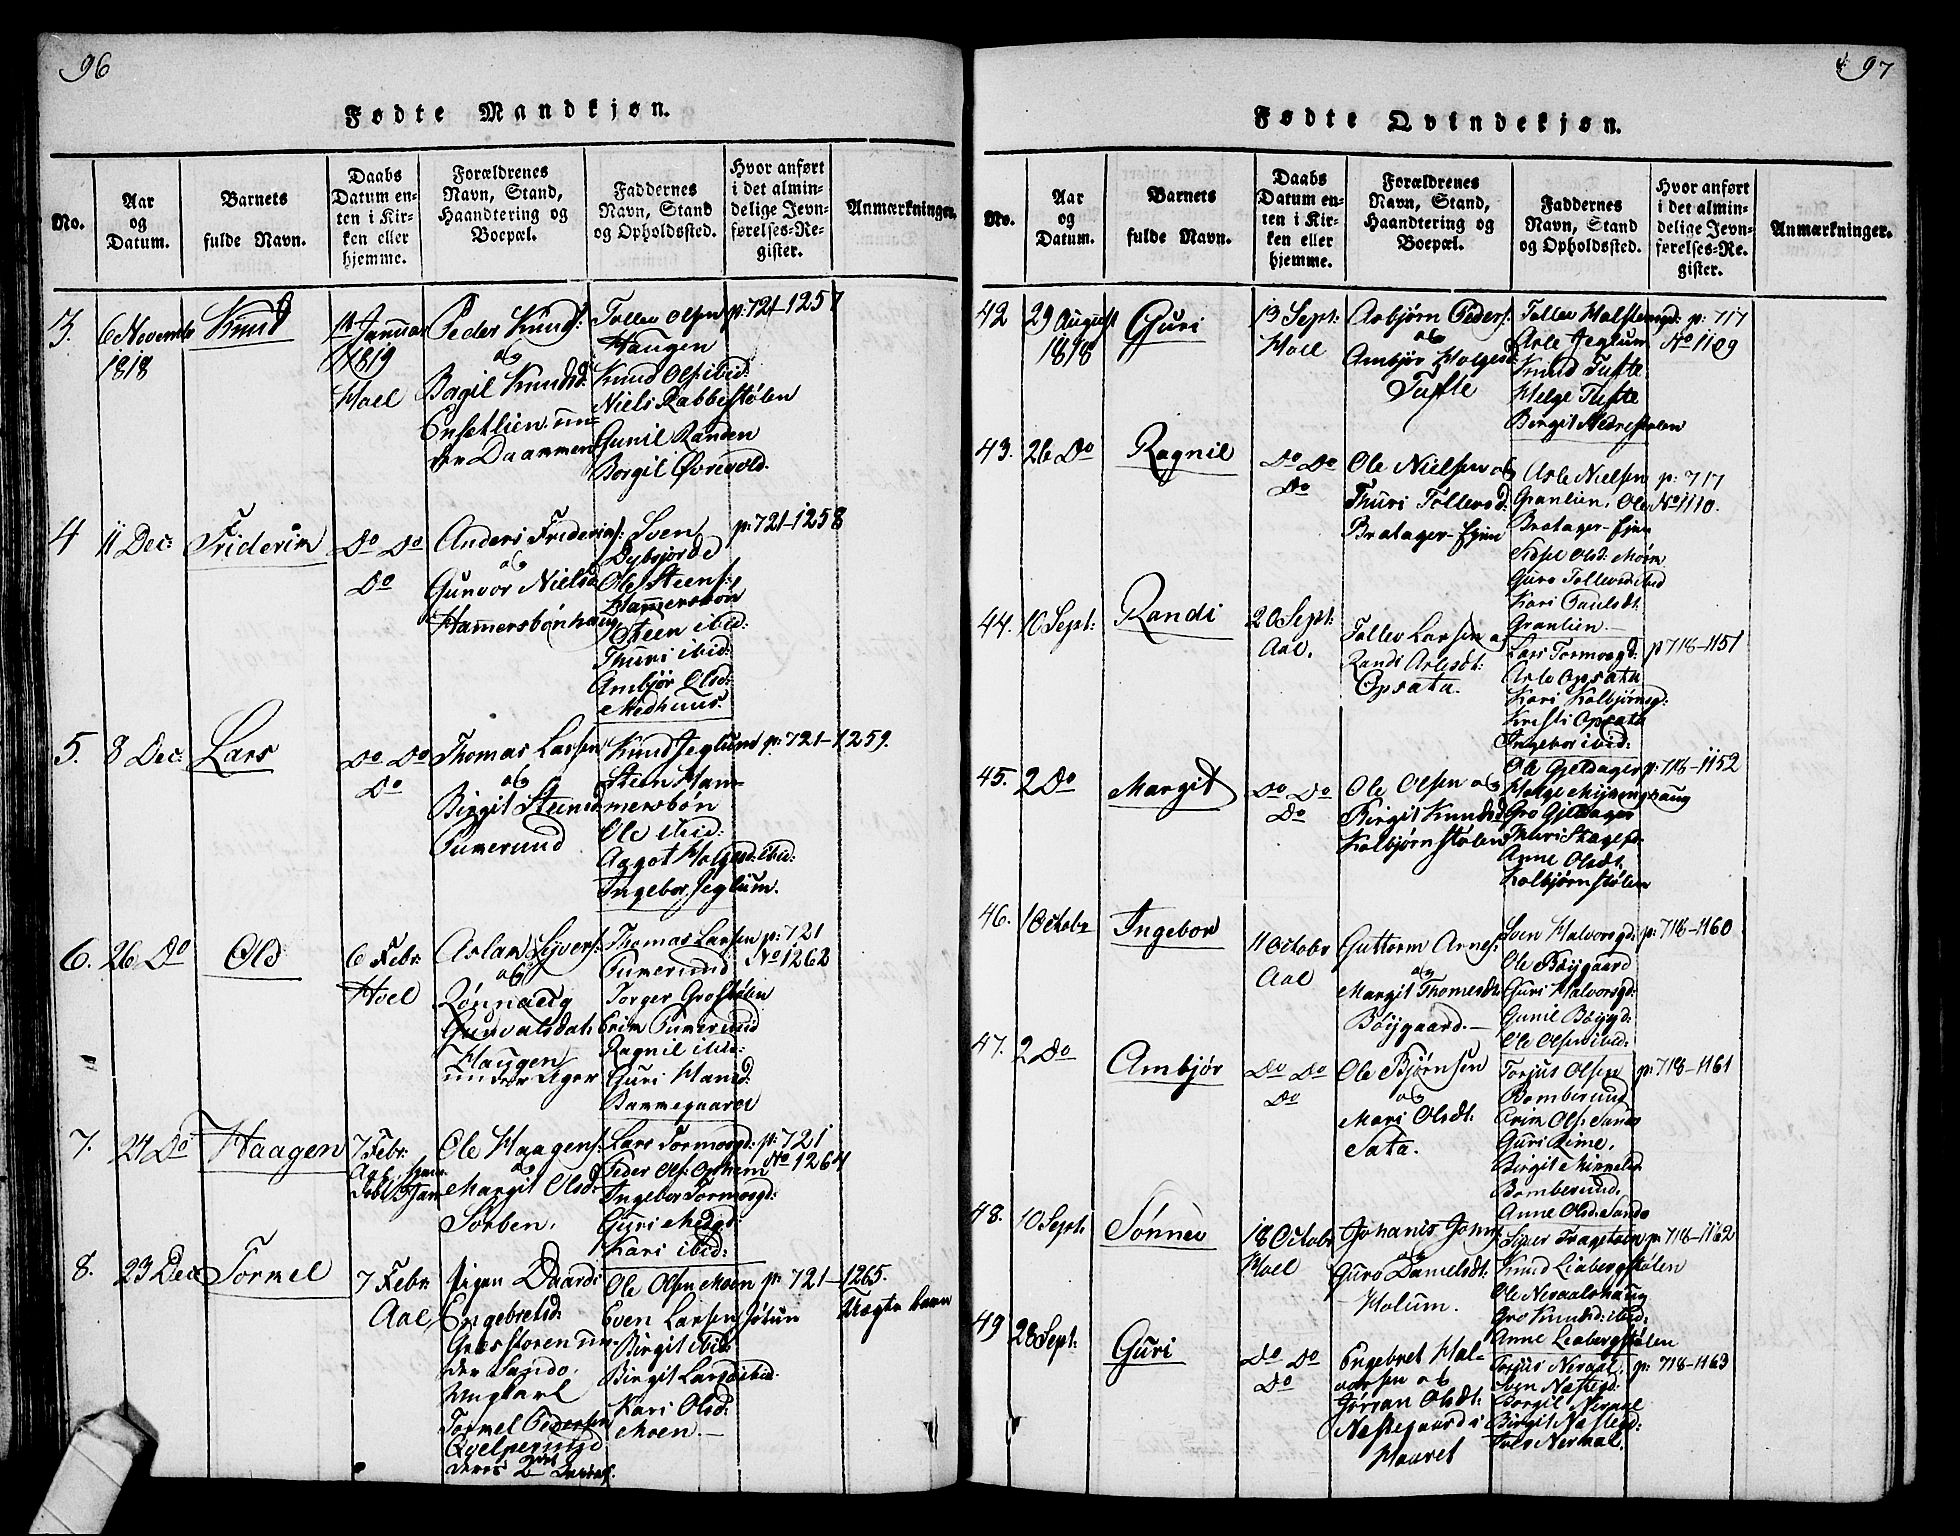 96
Fødte Mandkjøn.
No.
Aar
og
Datum.
Barnets
fulde Navn.
Daabs
Datum en-
ten i Kir-
ken eller
hjemme.
Forældrenes
Navn, Stand,
Haandtering og
Boepæl.
Faddernes
Navn, Stand
og Opholdssted.
Hvor anført
i det almin-
delige Jevn-
førelses-Re-
gister.
Anmærkninger.
3.
6 Novemb
1818
Knud
Januar
1819
Hoel
Peder Knuds:
og
Birgit Knudsd:
Ensetlien un-
der Daammen
Tollev Olsen
Haugen
Knud Ols: ibid:
Niels Rabbestølen
Gunil Randen
Borgil Øvrevold.
p: 721–1257
4
11 Dec:
Friderim
Do Do
Do
Anders Friderims:
og
Gunvor Nielsd
Hamersbønhaug
Sven
Dybsjord
Ole Steens:
Hamersbøn
Steen ibid:
Thuri ibid:
Ambjør Olsd:
Medhuus.
p: 721–1258
5.
8 Dec:
Lars
Do Do
Do
Thomas Larsen
og
Birgit Steensd
Tumerund
Knud Jeglum
Steen Ham-
mersbøn
Ole ibid:
Aagot Holgesd: ibid:
Ingebor Jeglum.
p: 721–1259.
6.
26 Do
Ole
6 Febr:
Hoel
Aslak Syvers:
og
Rønnaug
Gunvalsdat:
Haugen
under Ager
Thomas Larsen
Tumerund
Torger Grostølen
Erim Tumerund
Ragnil ibid:
Guri Hansd:
Bammegaard
p: 721
No 1262
7.
27 Do
Haagen
7 Febr:
Ole Haagens:
og
Margit Olsd:
Sorben.
Lars Tormosgd:
Peder Ols:
Ingebor Tormosgd:
Guri
Kari ibid:
p: 721
No 1264
8.
23 Dec
Tormel
7 Febr
Aal
Engebretsd:
under Sando,
Ungkarl
Tormel Pedersen
Ole Olsen Moen
Even Larsen Jøtun
Birgit ibid:
Birgit Larsd: ibid.
Kari Olsd:
Moen.
p: 721–1265.
Uægte barn
97
Fødte Qvindekjøn.
No.
Aar
og
Datum.
Barnets
fulde Navn.
Daabs
Datum en-
ten i Kir-
ken eller
hjemme.
Forældrenes
Navn, Stand,
Haandtering og
Boepæl.
Faddernes
Navn, Stand
og Opholdssted.
Hvor anført
i det almin-
delige Jevn-
førelses-Re-
gister.
Anmærkninger.
42
29 August
1818
Guri
13 Sept:
Hoel
Asbjørn Peders:
og
Ambjør Holgesd
Tufte
Tollev Halstensgd:
Asle Jeglum
Knud Tufte
Helge Tufte
Birgit Nedrestølen
p: 717
No 1109
43.
26 Do
Ragnil
Do Do
Do
Ole Nielsen og
Thuri Tollevsd:
Bratager-Ejen
Asle Nielsen
Granlien, Ole
Bratager-Ejen
Sidsel Olsd: Moen
Guro Tollevsd ibid
Kari Paulsdt:
Granlien
p: 717
No 1110.
44.
10 Sept:
Randi
20 Sept:
Aal.
Tollev Larsen og
Randi Aslesdt:
Opsata.
Lars Tormosgd:
Asle Opsata
Kari Kolbjørnsgd:
Kirsti Opsata
Ingebor ibid:
p 718–1151
45.
2 Do
Margit
Do Do
Do
Ole Olsen og
Birgit Knudsd
Kolbjørnstølen
Ole Gjeldager
Gro Gjeldager
Anne Olsdt:
Kolbjørnstølen
p: 718–1152
46.
1 Octobr
Ingebor
11 Octobr
Aal
Guttorm Arnes:
og
Margit Thomesdt
Bøygaard.
Sven Halvorsgd:
Ole Bøygaard
Guri Halvorsgd:
Gunil Bøygd:
Ole Olsen ibid:
p: 718–1160
47.
2 Do
Ambjør
Do Do
Do
Ole Bjørnsen
og
Mari Olsdt:
Sata.
Torjus Olsen
Bomberud
Erim Ols: Sando
Guri Lime,
Birgit
Bomberud.
Anne Olsd: Sando
p: 718–1161
48.
10 Sept:
Sønnev
18 Octobr
Hoel
Johanis Johns:
og
Guro Danielsdt:
Holum.
Knud Liabergstølen
Ole Neraalshaug
Gro Knudsd: ibid:
Anne Liabergstølen
p: 718–1162
49
28 Sept:
Guri
Do Do
Do
Engebret Hal-
vorsen og
Jøran Olsdt:
Nestegaard i
Torjus Neraal,
Sven Nestegd:
Borgil Neraal
Birgit Nestegd:
p: 718–1163